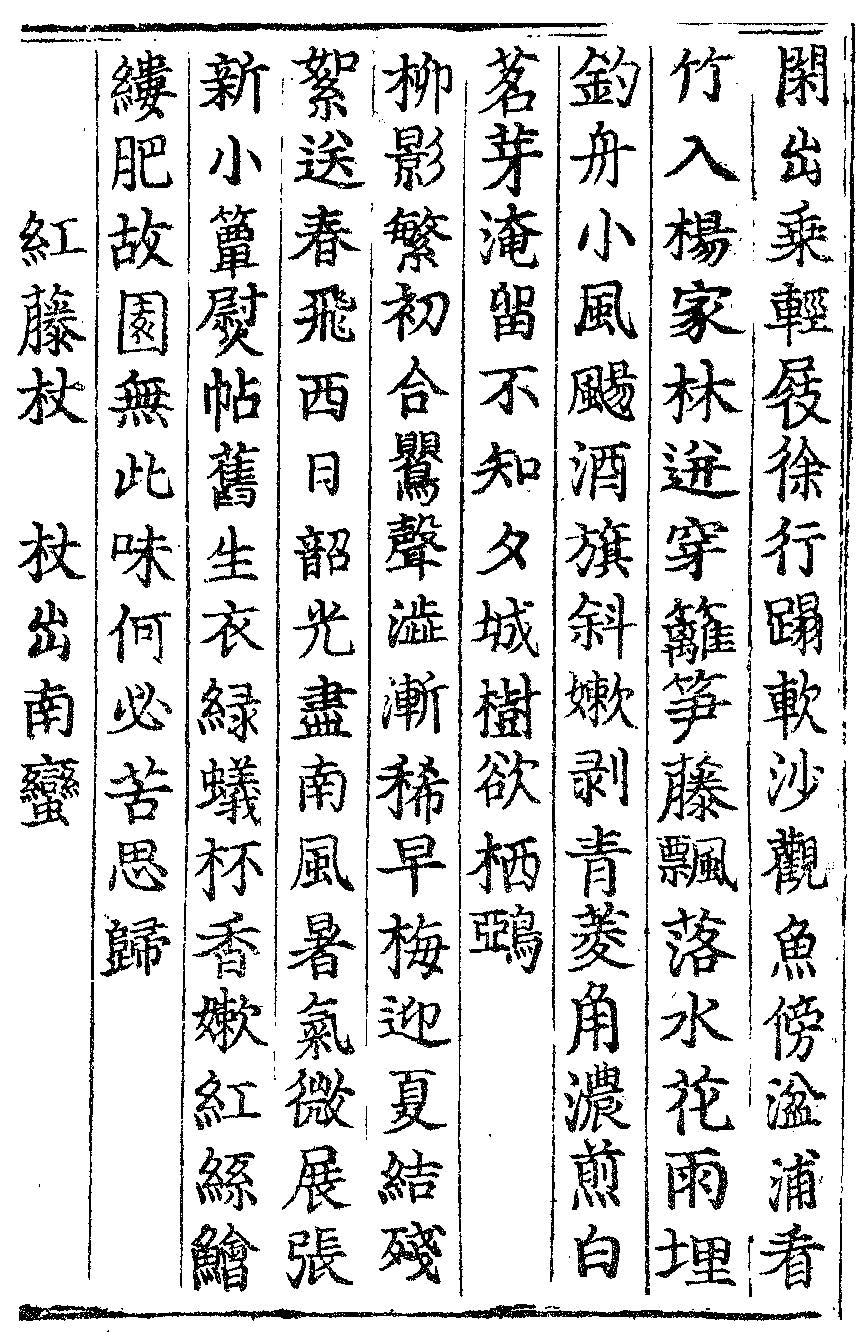 閑出乗輕屐徐行蹋軟沙觀魚傍湓浦看
竹入楊家林迸穿籬笋藤飄落水花雨埋
釣舟小風颺酒旗斜嫩剥青菱角濃煎白
茗芽淹留不知夕城樹欲栖鵶
柳影繁初合鸎聲澁漸稀早梅迎夏結殘
絮送春飛西日韶光盡南風暑氣微展張
新小簟熨帖舊生衣緑蟻杯香嫩紅絲鱠
縷肥故園無此味何必苦思歸
紅藤杖　杖出南蠻